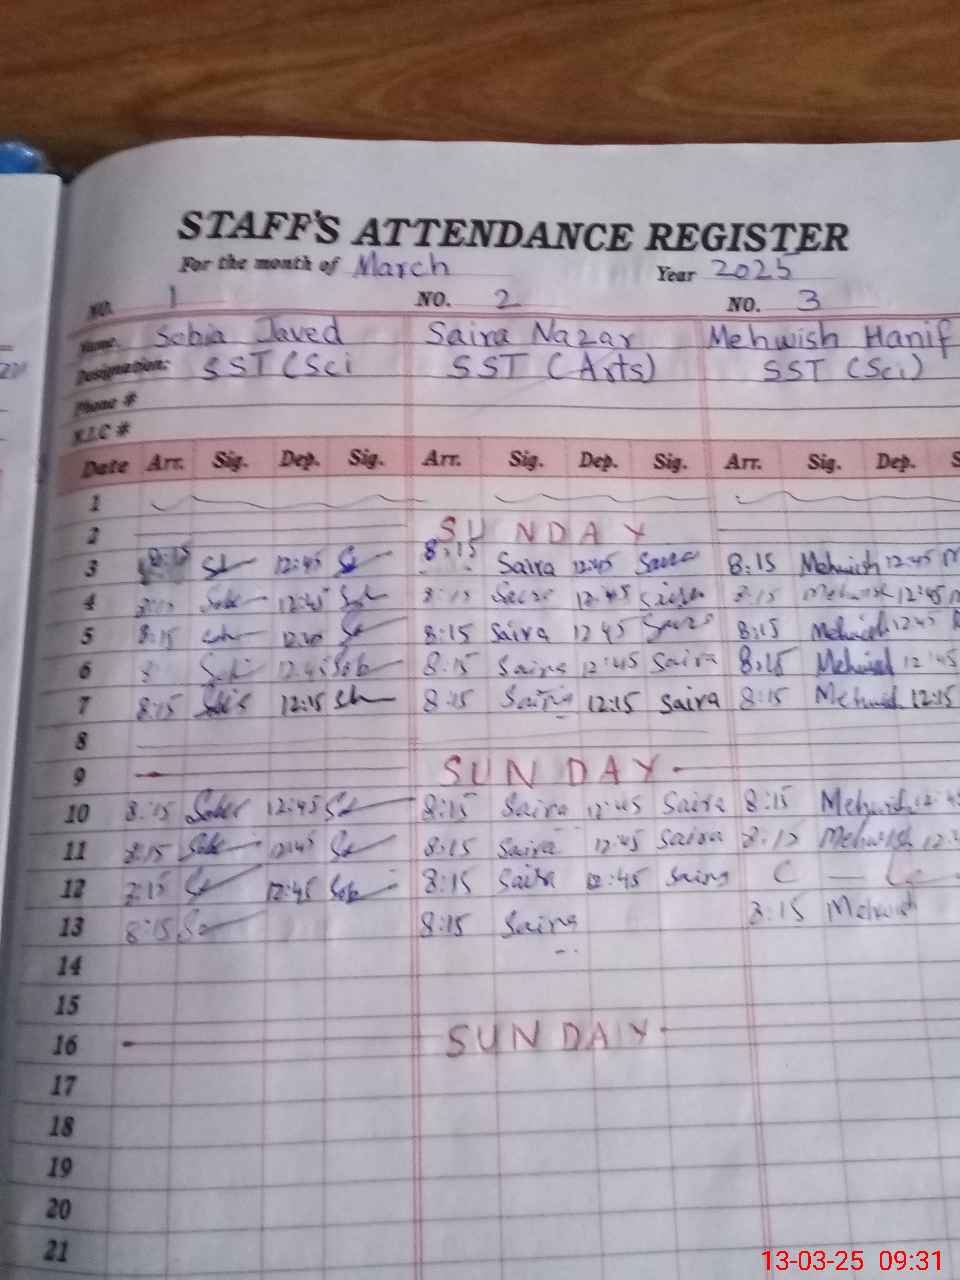 STAFF'S ATTENDANCE REGISTER
For the month of March Year 2025
NO. 1 NO. 2 NO. 3
Name. Sobia Javed Saira Nazar Mehwish Hanif
Designation: SST (Sci SST (Arts) SST (Sci)
Phone #
N.I.C #
Date Arr. Sig. Dep. Sig. Arr. Sig. Dep. Sig. Arr. Sig. Dep. S
1
2 SUNDAY
3 8:15 12:45 8:15 Saira 12:45 Saira 8:15 Mehwish 12:45
4 8:15 12:45 8:15 Saira 12:45 Saira 8:15 Mehwish 12:45
5 8:15 8:15 Saira 12 45 Saira 8:15 Mehwish 12:45
6 8 12:45 Sob 8:15 Saira 12:45 Saira 8:15 Mehwish 12:45
7 8:15 12:15 8:15 Saira 12:15 Saira 8:15 Mehwish 12:15
8
9 SUNDAY
10 8:15 12:45 8:15 Saira 12:45 Saira 8:15 Mehwish 12:45
11 8:15 12:45 8:15 Saira 12:45 Saira 8:15 Mehwish 12:
12 8:15 12:45 Sob 8:15 Saira 12:45 Saira C — Le
13 8:15 8:15 Saira 8:15 Mehwish
14
15
16 SUNDAY
17
18
19
20
21
13-03-25 09:31